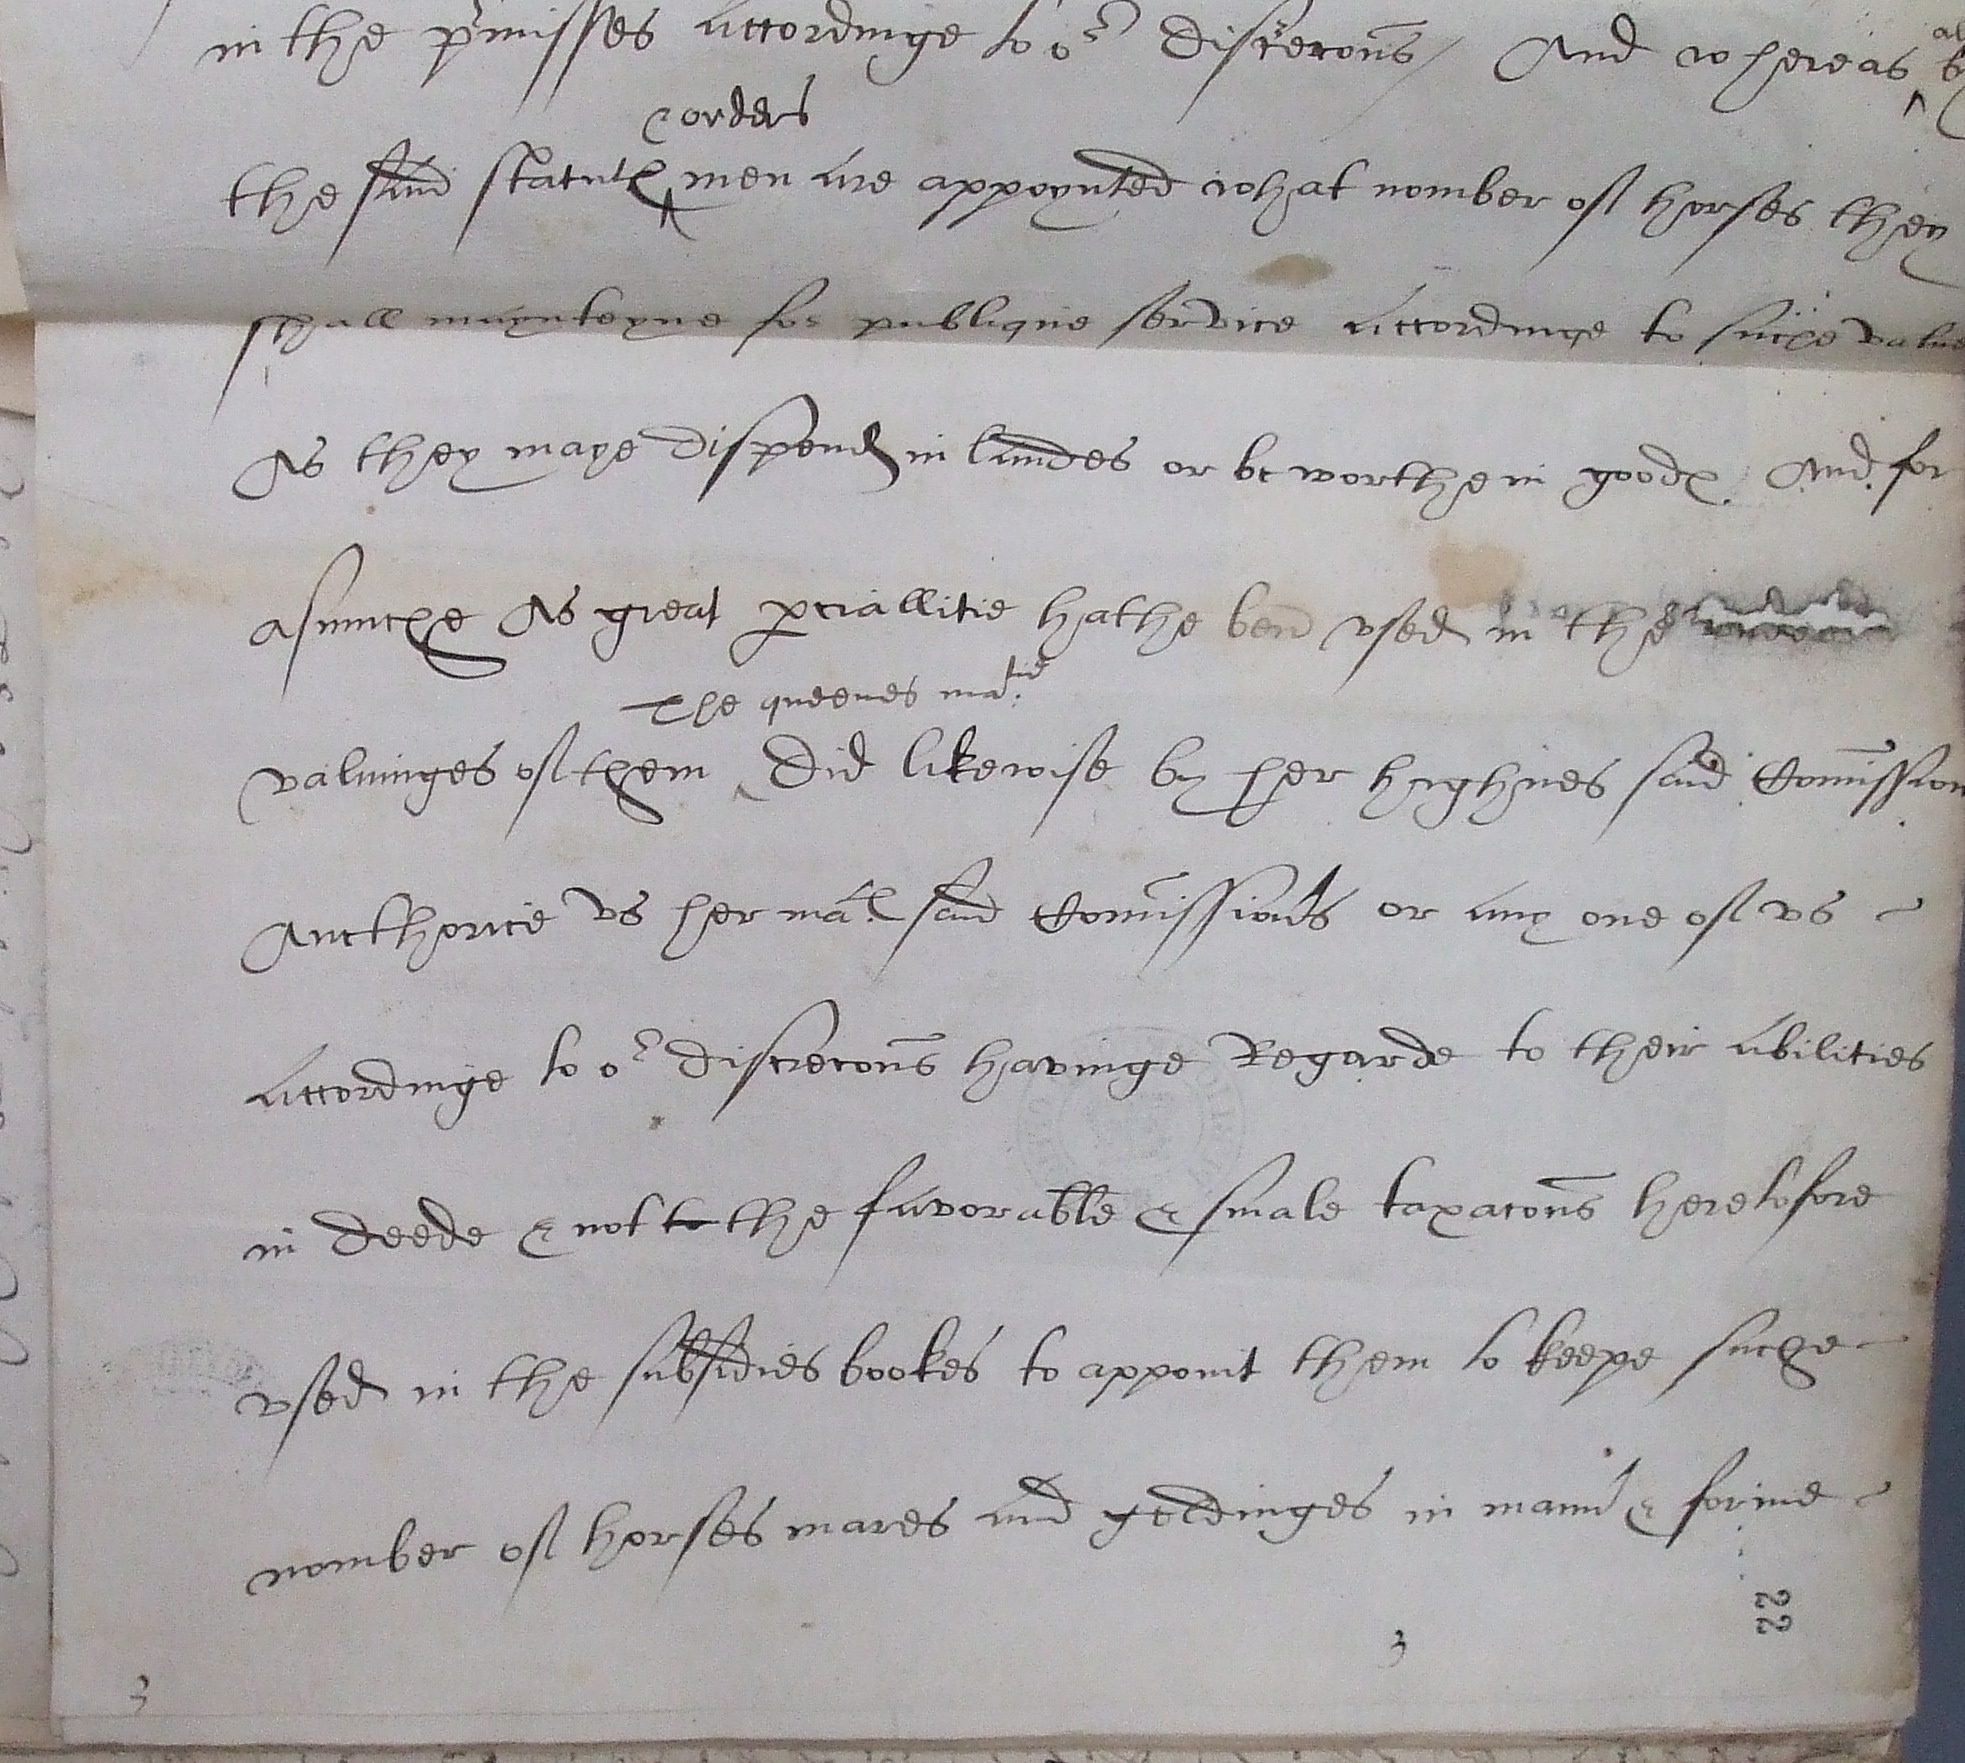 in the p̄misses accordinge to oʳ discrecons / And whereas
& orders
the said statutꝭ men are appoynted what nomber of horses they
shall maynteyne for publique service accordinge to suche value
As they maye dispend in landes or be worthe in goodꝭ. And for
asmuche As great ꝑciallitie hathe ben vsed in the
The queenes maᵗⁱᵉ
valuinges of them did likewise by her highnes said Comission
Aucthorice vs her maᵗꝭ said Comissionʳs or any one of vs
accordinge to oʳ discrecons havinge Regarde to their abilities
in deede & not to the favorable & smale taxacons heretofore
vsed in the subsidies bookes to appoint them to keepe suche
nomber of horses mares and geldinges in mannʳ & forme
22
3
3